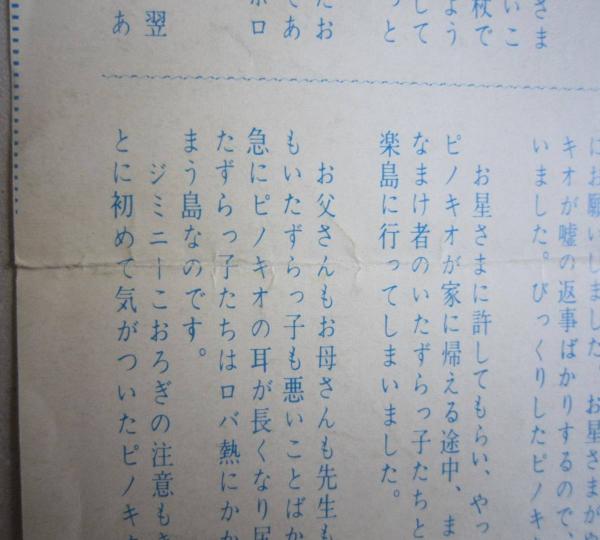 さま
いこ
杖で
よう
して
っと
たお
であ
ボロ
翌
あ
にお願いしました。お星さまがや
キオが嘘の返事ばかりするので、
いました。びっくりしたピノキ
お星さまに許してもらい、やっ
ピノキオが家に帰える途中、ま
なまけ者のいたずらっ子たちと
楽島に行ってしまいました。
お父さんもお母さんも先生も
もいたずらっ子も悪いことばか
急にピノキオの耳が長くなり尻
たずらっ子たちはロバ熱にかか
まう島なのです。
ジミニーこおろぎの注意もき
とに初めて気がついたピノキオ